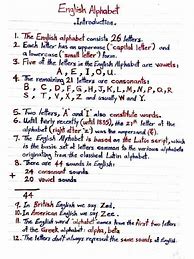 English Alphabet
Introduction.
1. The English alphabet consists 26 letters.
2. Each letter has an uppercase ("capital letter") and
a lowercase ("small letter") form.
3. Five of the letters in the English Alphabet are vowels:
A, E, I, O, U.
4. The remaining 21 letters are consonants:
B, C, D, F, G, H, J, K, L, M, N, P, Q, R
S, T, V, X, Z and usually W and Y.
5. Two letters, 'A' and 'I' also constitute words.
6. Until fairly recently (until 1835), the 27th letter of the
alphabet (right after 'z') was the ampersand (&).
7. The English Alphabet is based on the Latin script, which
is the basic set of letters common to the various alphabets
originating from the classical Latin alphabet.
8. There are 44 sounds in English:
24 consonant sounds
+
20 vowel sounds
44
9. In British English we say Zed.
10. In American English we say Zee.
11. The English word 'alphabet' comes from the first two letters
of the Greek alphabet: alpha, beta
12. The letters don't always represent the same sounds of English.